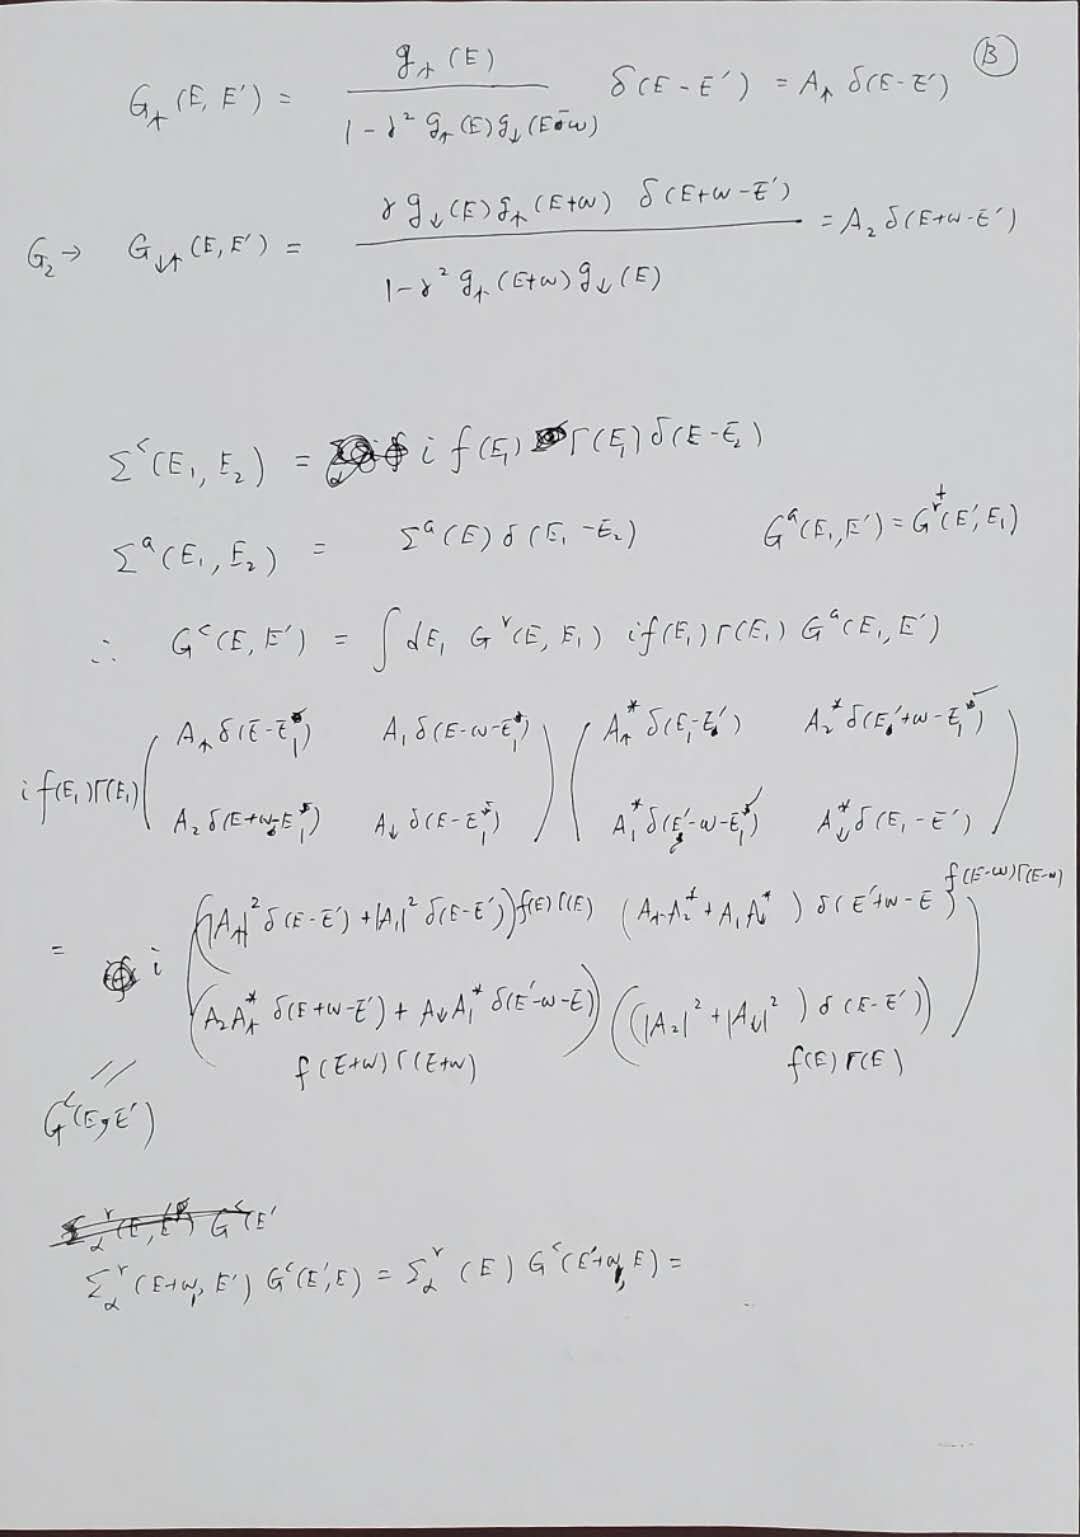 B
G↑(E, E′) = g↑(E) / (1 − γ² g↑(E) g↓(E−ω)) δ(E − E′) = A↑ δ(E−E′)
G₂ → G↓↑(E, E′) = γ g↓(E) g↑(E+ω) δ(E+ω−E′) / (1 − γ² g↑(E+ω) g↓(E)) = A₂ δ(E+ω−E′)
Σ^<(E₁, E₂) = i f(E₁) Γ(E₁) δ(E−E₂)
Σ^a(E₁, E₂) = Σ^a(E) δ(E₁−E₂) G^a(E₁, E′) = G^r†(E′, E₁)
∴ G^<(E, E′) = ∫dE₁ G^r(E, E₁) i f(E₁) Γ(E₁) G^a(E₁, E′)
i f(E₁)Γ(E₁) ( A↑ δ(E−E₁) A₁ δ(E−ω−E₁) ) ( A↑* δ(E₁−E′) A₂* δ(E′+ω−E₁) )
( A₂ δ(E+ω−E₁) A↓ δ(E−E₁) ) ( A₁* δ(E′−ω−E₁) A↓* δ(E₁−E′) )
= i ( (|A↑|² δ(E−E′) + |A₁|² δ(E−E′)) f(E) Γ(E) (A↑A₂* + A₁A↓*) δ(E′+ω−E) f(E−ω)Γ(E−ω)
(A₂A↑* δ(E+ω−E′) + A↓A₁* δ(E′−ω−E)) ((|A₂|² + |A↓|²) δ(E−E′)) )
f(E+ω) Γ(E+ω) f(E) Γ(E)
//
G^<(E, E′)
Σ_α^r(E+ω, E′) G^<(E′, E) = Σ_α^r(E) G^<(E′+ω, E) =